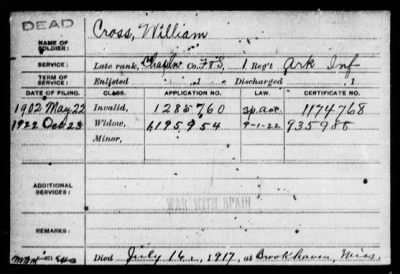 DEAD
NAME OF SOLDIER: Cross, William
SERVICE: Late rank, Co. F & S, 1 Reg't Ark Inf
TERM OF SERVICE: Enlisted , 1 Discharged , 1
DATE OF FILING. CLASS. APPLICATION NO. LAW. CERTIFICATE NO.
1902 May 22 Invalid, 1285760 1174768
1922 Oct 23 Widow, 1195954 9-1-22 935986
Minor,
ADDITIONAL SERVICES:
WAR WITH SPAIN
REMARKS:
Died July 16, 1917, at Brookhaven, Miss.